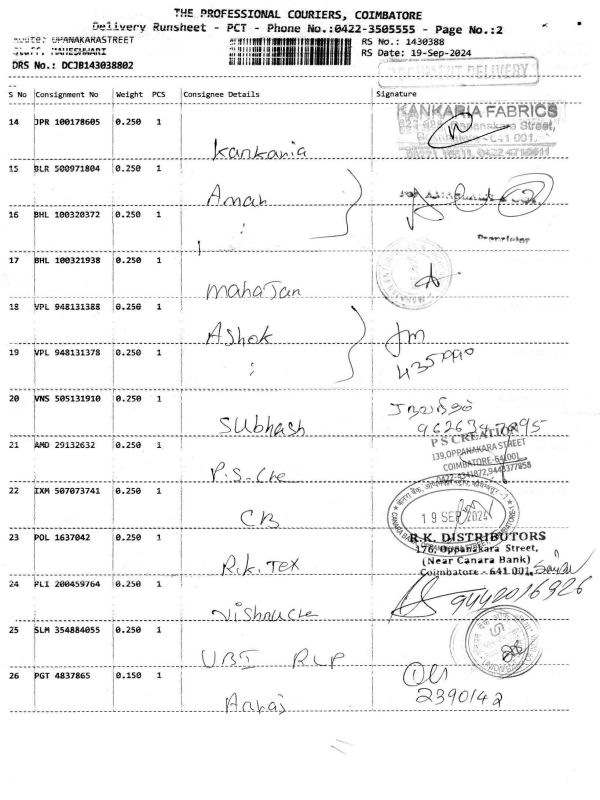 THE PROFESSIONAL COURIERS, COIMBATORE
Delivery Runsheet - PCT - Phone No.:0422-3505555 - Page No.:2
Route: OPANAKARASTREET
RS No.: 1430388
Staff: MAHESHWARI
RS Date: 19-Sep-2024
DRS No.: DCJB143038802
DOCUMENT DELIVERY
S No Consignment No Weight PCS Consignee Details Signature
14 JPR 100178605 0.250 1
KANKARIA FABRICS
Oppanakara Street,
641 001,
Kankaria
15 BLR 500971804 0.250 1
Aman
16 BHL 100320372 0.250 1
:
Proprietor
17 BHL 100321938 0.250 1
mahaJan
18 VPL 948131388 0.250 1
Ashok
19 VPL 948131378 0.250 1
:
20 VNS 505131910 0.250 1
Subhash
P S CREATION
139,OPPANAKARA STREET
COIMBATORE-641 001
21 AMD 29132632 0.250 1
P.S-Cre
22 IXM 507073741 0.250 1
CB
19 SEP 2024
23 POL 1637042 0.250 1
R.K. DISTRIBUTORS
176, Oppanakara Street,
(Near Canara Bank)
Coimbatore - 641 001.
R.K.TEX
24 PLI 200459764 0.250 1
9442016926
Vishnu Cre
25 SLM 354884055 0.250 1
UBI RLP
26 PGT 4837865 0.150 1
2390142